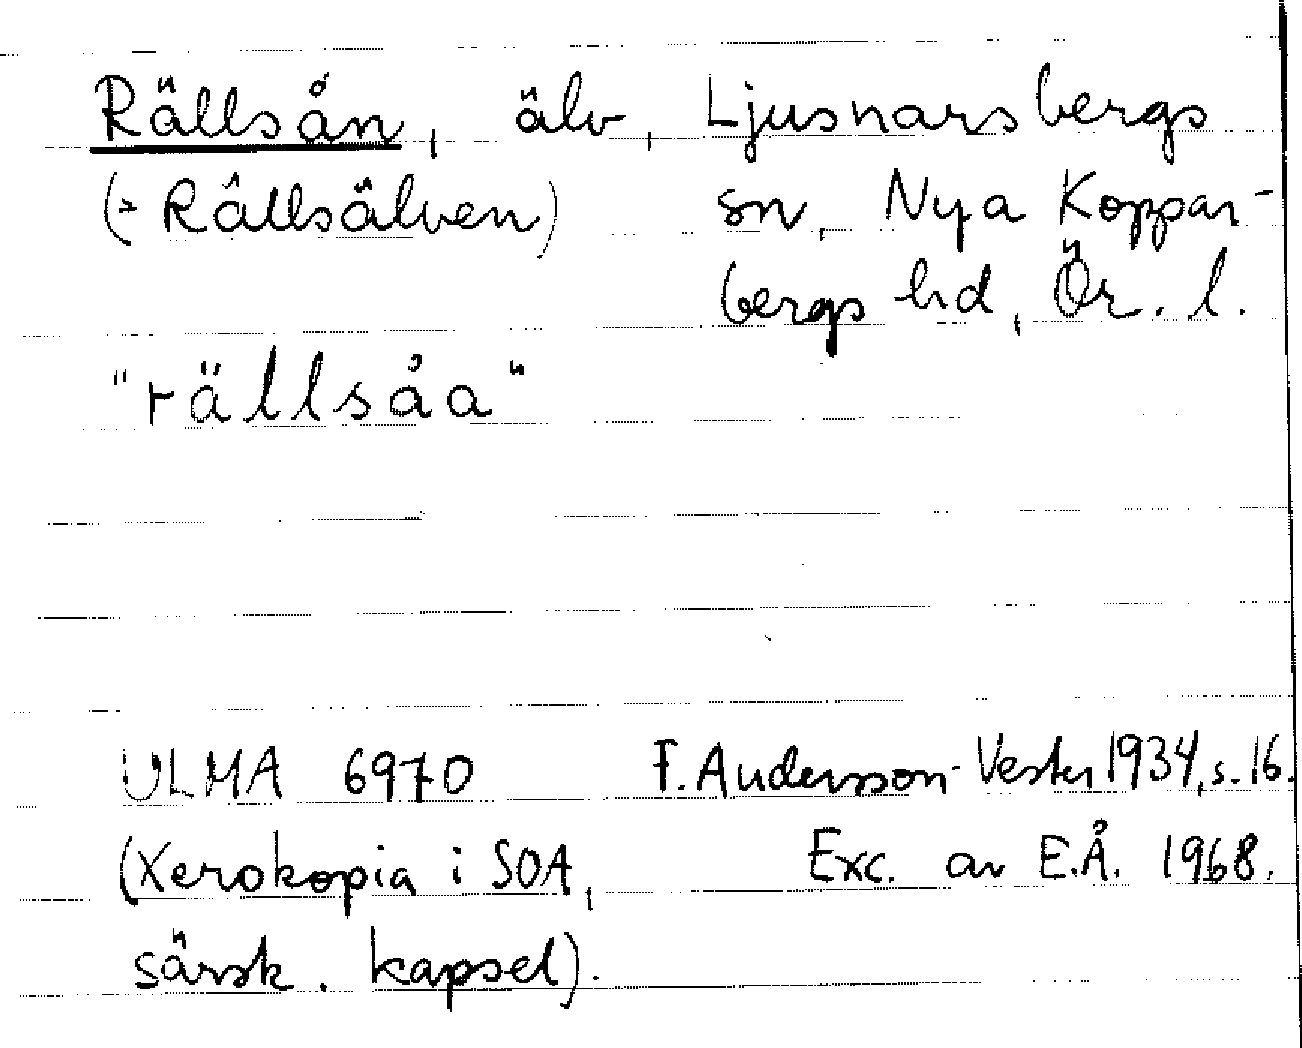 Rällsån, älv, Ljusnarsbergs
(= Rällsälven) sn, Nya Koppar-
bergs hd, Ör. l.
"rällsåa"
ULMA 6970 F. Andersson-Vester 1934, s. 16.
(Xerokopia i SOA, Exc. av E.Å. 1968.
särsk. kapsel).